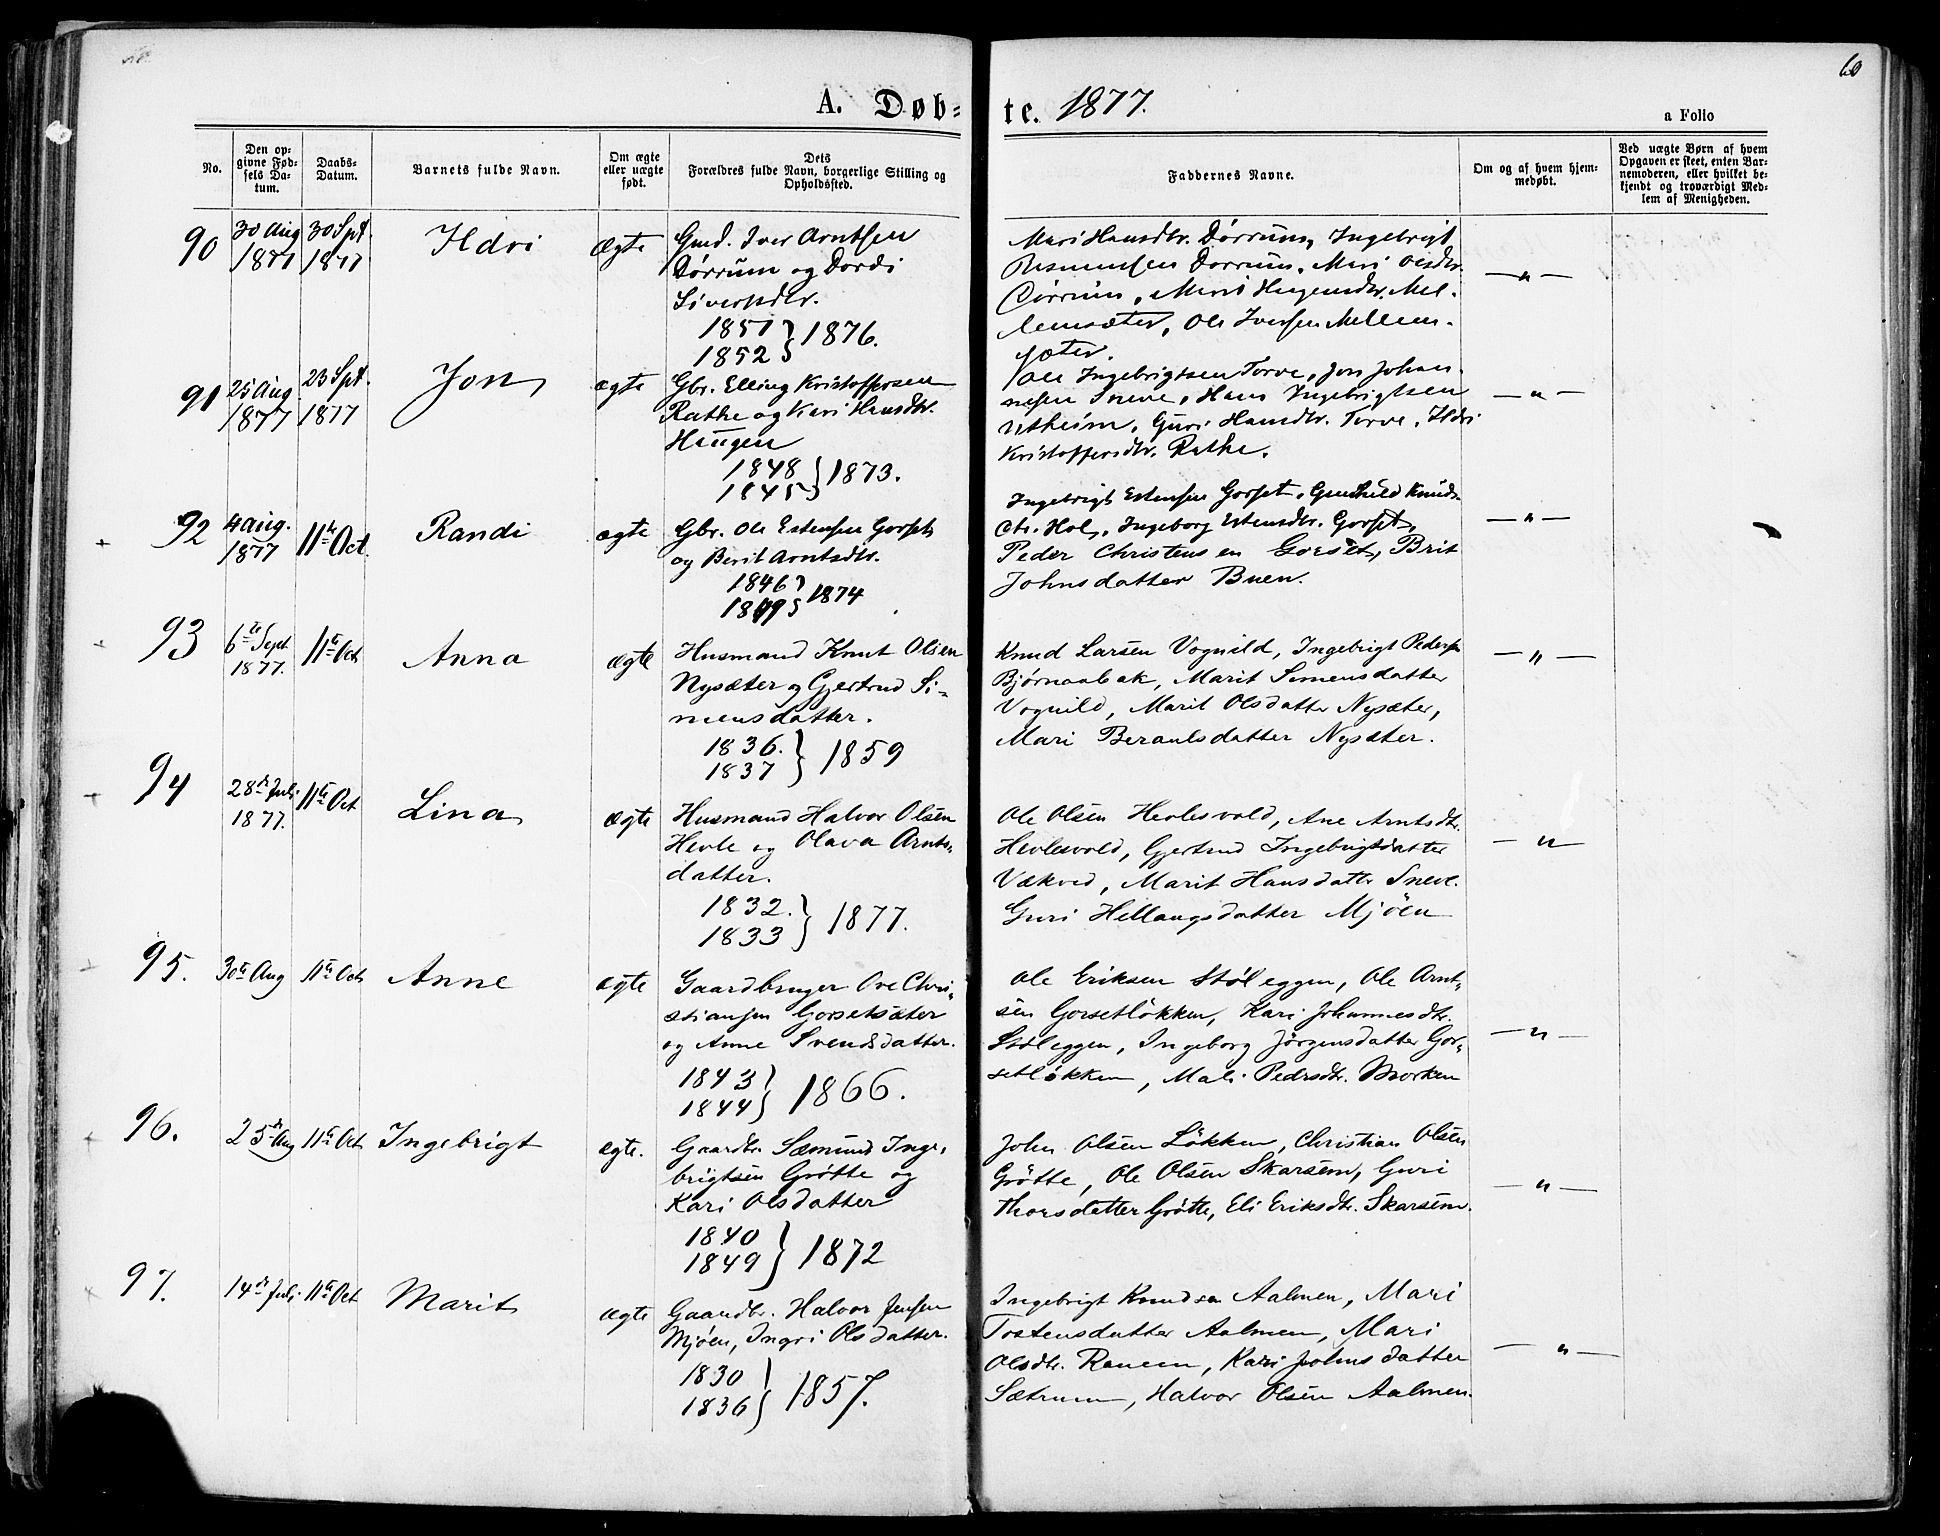 60
A. Døb= te. 1877.
a Folio
No.
Den op-
givne Fød-
sels Da-
tum.
Daabs-
Datum.
Barnets fulde Navn.
Om ægte
eller uægte
født.
Dets
Forældres fulde Navn, borgerlige Stilling og
Opholdssted.
Faddernes Navne.
Om og af hvem hjem-
medøbt.
Ved uægte Børn af hvem
Opgaven er skeet, enten Bar-
nemoderen, eller hvilket be-
kjendt og troværdigt Med-
lem af Menigheden.
90
30 Aug
1877
30 Spt.
1877
Ildri
Ægte
Gmd. Iver Arntsen
Dørrum og Dordi
Sivertsdtr.
1851
1852 } 1876.
Mari Hansdtr. Dørrum, Ingebrigt
Rasmussen Dørrum, Mari Olsdtr.
Dørrum, Marit Haagensdtr. Mel-
lemsæter, Ole Iversen Mellem-
sæter.
— " —
91
25 Aug
1877
23 Spt.
1877
Jon
ægte
Gbr. Elling Kristoffersen
Rathe og Kari Hansdtr.
Haugen
1848
1845 } 1873.
Ole Ingebrigtsen Torve, Jon Johan-
nesen Sneve, Hans Ingebrigtsen
Utheim, Guri Hansdtr. Torve, Ildri
Kristoffersdtr. Rathe.
— " —
92
4 Aug.
1877
11te Oct.
Randi
ægte
Gbr. Ole Estensen Gorset
og Berit Arntsdtr.
1846
1849 } 1874
Ingebrigt Estensen Gorset, Gunhild Knuds-
dtr. Hol, Ingeborg Estensdtr. Gorset,
Peder Christensen Gorset, Brit
Johnsdatter Buen.
— " —
93
6te Sept
1877.
11te Oct
Anna
ægte
Husmand Knut Olsen
Nysæter og Gjertrud Si-
mensdatter.
1836.
1837 } 1859
Knud Larsen Vognild, Ingebrigt Pedersen
Bjørnaabak, Marit Simensdatter
Vognild, Marit Olsdatter Nysæter,
Mari Beraulsdatter Nysæter.
— " —
94
28de Juli
1877.
11te Oct
Lina
ægte
Husmand Halvor Olsen
Hevle og Olava Arnts-
datter.
1832.
1833 } 1877.
Ole Olsen Hevlesvold, Ane Arntsdtr.
Hevlesvold, Gjertrud Ingebrigtsdatter
Vækved, Marit Hansdatter Sneve.
Guri Hellangsdatter Mjøen
— " —
95.
30te Aug
11te Oct
Anne
ægte
Gaardbruger Ove Chri-
stiansen Gorsetsæter
og Anne Svendsdatter.
1843
1844 } 1866.
Ole Eriksen Støleggen, Ole Arnt-
sen Gorsetløkken, Kari Johannesdtr.
Støleggen, Ingeborg Jørgensdatter Gor-
setløkken, Mali Pedrsdtr. Morken
— " —
96.
25de Aug
11te Oct
Ingebrigt
ægte.
Gaardbr. Sæmund Inge-
brigtsen Grøtte og
Kari Olsdatter
1840
1849 } 1872
John Olsen Løkken, Christian Olsen
Grøtte, Ole Olsen Skarsem, Guri
Thorsdatter Grøtte, Eli Eriksdtr. Skarsem.
— " —
97.
14de Juli
11te Oct
Marit
ægte
Gaardbr. Halvor Jensen
Mjøen, Ingri Olsdatter.
1830
1836 } 1857.
Ingebrigt Knudsen Aalmen, Mari
Tostensdatter Aalmen, Mari
Olsdtr. Ranem, Kari Johnsdatter
Sætrum, Halvor Olsen Aalmen.
— " —